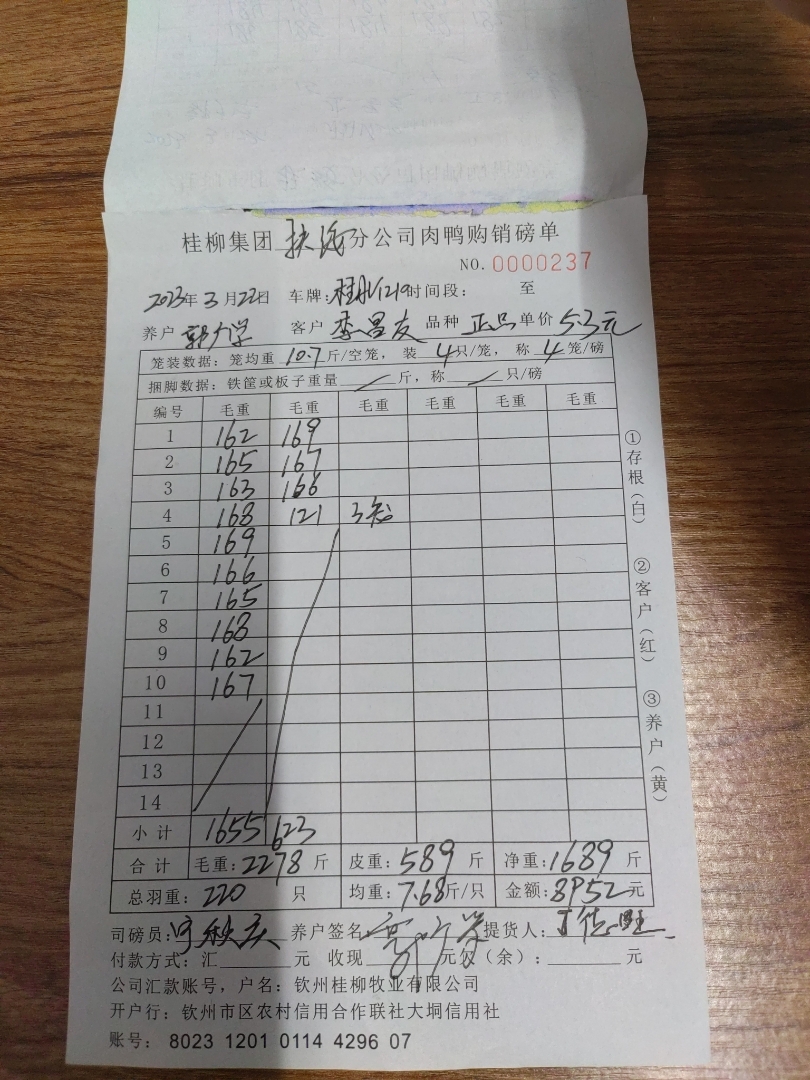 桂柳集团 扶绥 分公司肉鸭购销磅单
NO. 0000237
2023年3月22日 车牌:桂 1219 时间段: 至
养户 客户 李昌友 品种 正品 单价 5.3元
笼装数据: 笼均重 10.7 斤/空笼, 装 4只/笼, 称 4 笼/磅
捆脚数据: 铁筐或板子重量 / 斤, 称 / 只/磅
编号 毛重 毛重 毛重 毛重 毛重 毛重
1 162 169
2 165 167
3 163 166
4 168 121 3笼
5 169
6 166
7 165
8 168
9 162
10 167
11
12
13
14
小计 1655 623
合计 毛重: 2278 斤 皮重: 589 斤 净重: 1689 斤
总羽重: 220 只 均重: 7.68斤/只 金额: 8952元
司磅员: 养户签名 提货人:
付款方式: 汇 元 收现 元 (余): 元
公司汇款账号, 户名: 钦州桂柳牧业有限公司
开户行: 钦州市区农村信用合作联社大垌信用社
账号: 8023 1201 0114 4296 07
①存根(白)
②客户(红)
③养户(黄)